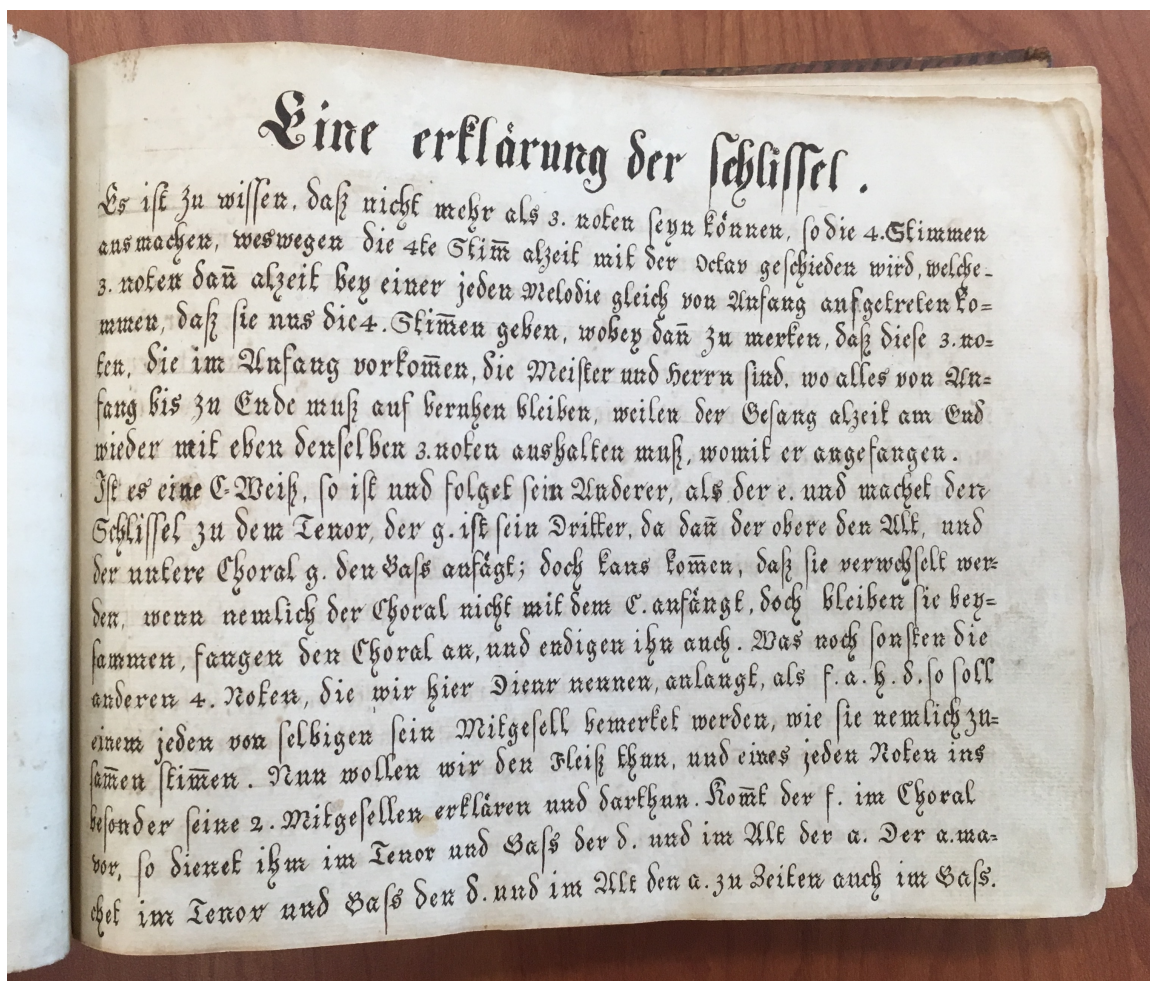 Eine erklärung der schlissel.
Es ist zu wissen, daß nicht mehr als 3. noten seyn können, so die 4. Stimmen
ausmachen, weswegen die 4te Stim̅ alzeit mit der Octav geschieden wird, welche-
3. noten dan̅ alzeit bey einer jeden Melodie gleich von Anfang aufgetreten ko=
mmen, daß sie uns die 4. Stim̅en geben, wobey dan̅ zu merken, daß diese 3. no=
ten, die im Anfang vorkom̅en, die Meister und Herrn sind, wo alles von An=
fang bis zu Ende muß auf beruhen bleiben, weilen der Gesang alzeit am End
wieder mit eben denselben 3. noten aushalten muß, womit er angefangen.
Ist es eine C-Weiß, so ist und folget sein Anderer, als der e. und machet den
Schlissel zu dem Tenor, der g. ist sein Dritter, da dan̅ der obere den Alt, und
der untere Choral g. den Bass anfägt; doch kans kom̅en, daß sie verwchselt wer=
den, wenn nemlich der Choral nicht mit dem C. anfängt, doch bleiben sie bey=
sammen, fangen den Choral an, und endigen ihn auch. Was noch sonsten die
anderen 4. Noten, die wir hier Dienr nennen, anlangt, als f. a. h. d. so soll
einem jeden von selbigen sein Mitgesell bemerket werden, wie sie nemlich zu=
sam̅en stim̅en. Nun wollen wir den Fleiß thun, und eines jeden Noten ins
besonder seine 2. Mitgesellen erklären und darthun. Kom̅t der f. im Choral
vor, so dienet ihm im Tenor und Bass der d. und im Alt der a. Der a. ma=
chet im Tenor und Bass den d. und im Alt den a. zu Zeiten auch im Bass.